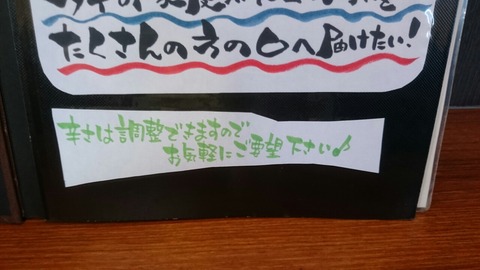 たくさんの方の口へ届けたい!
辛さは調整できますので
お気軽にご要望下さい♪